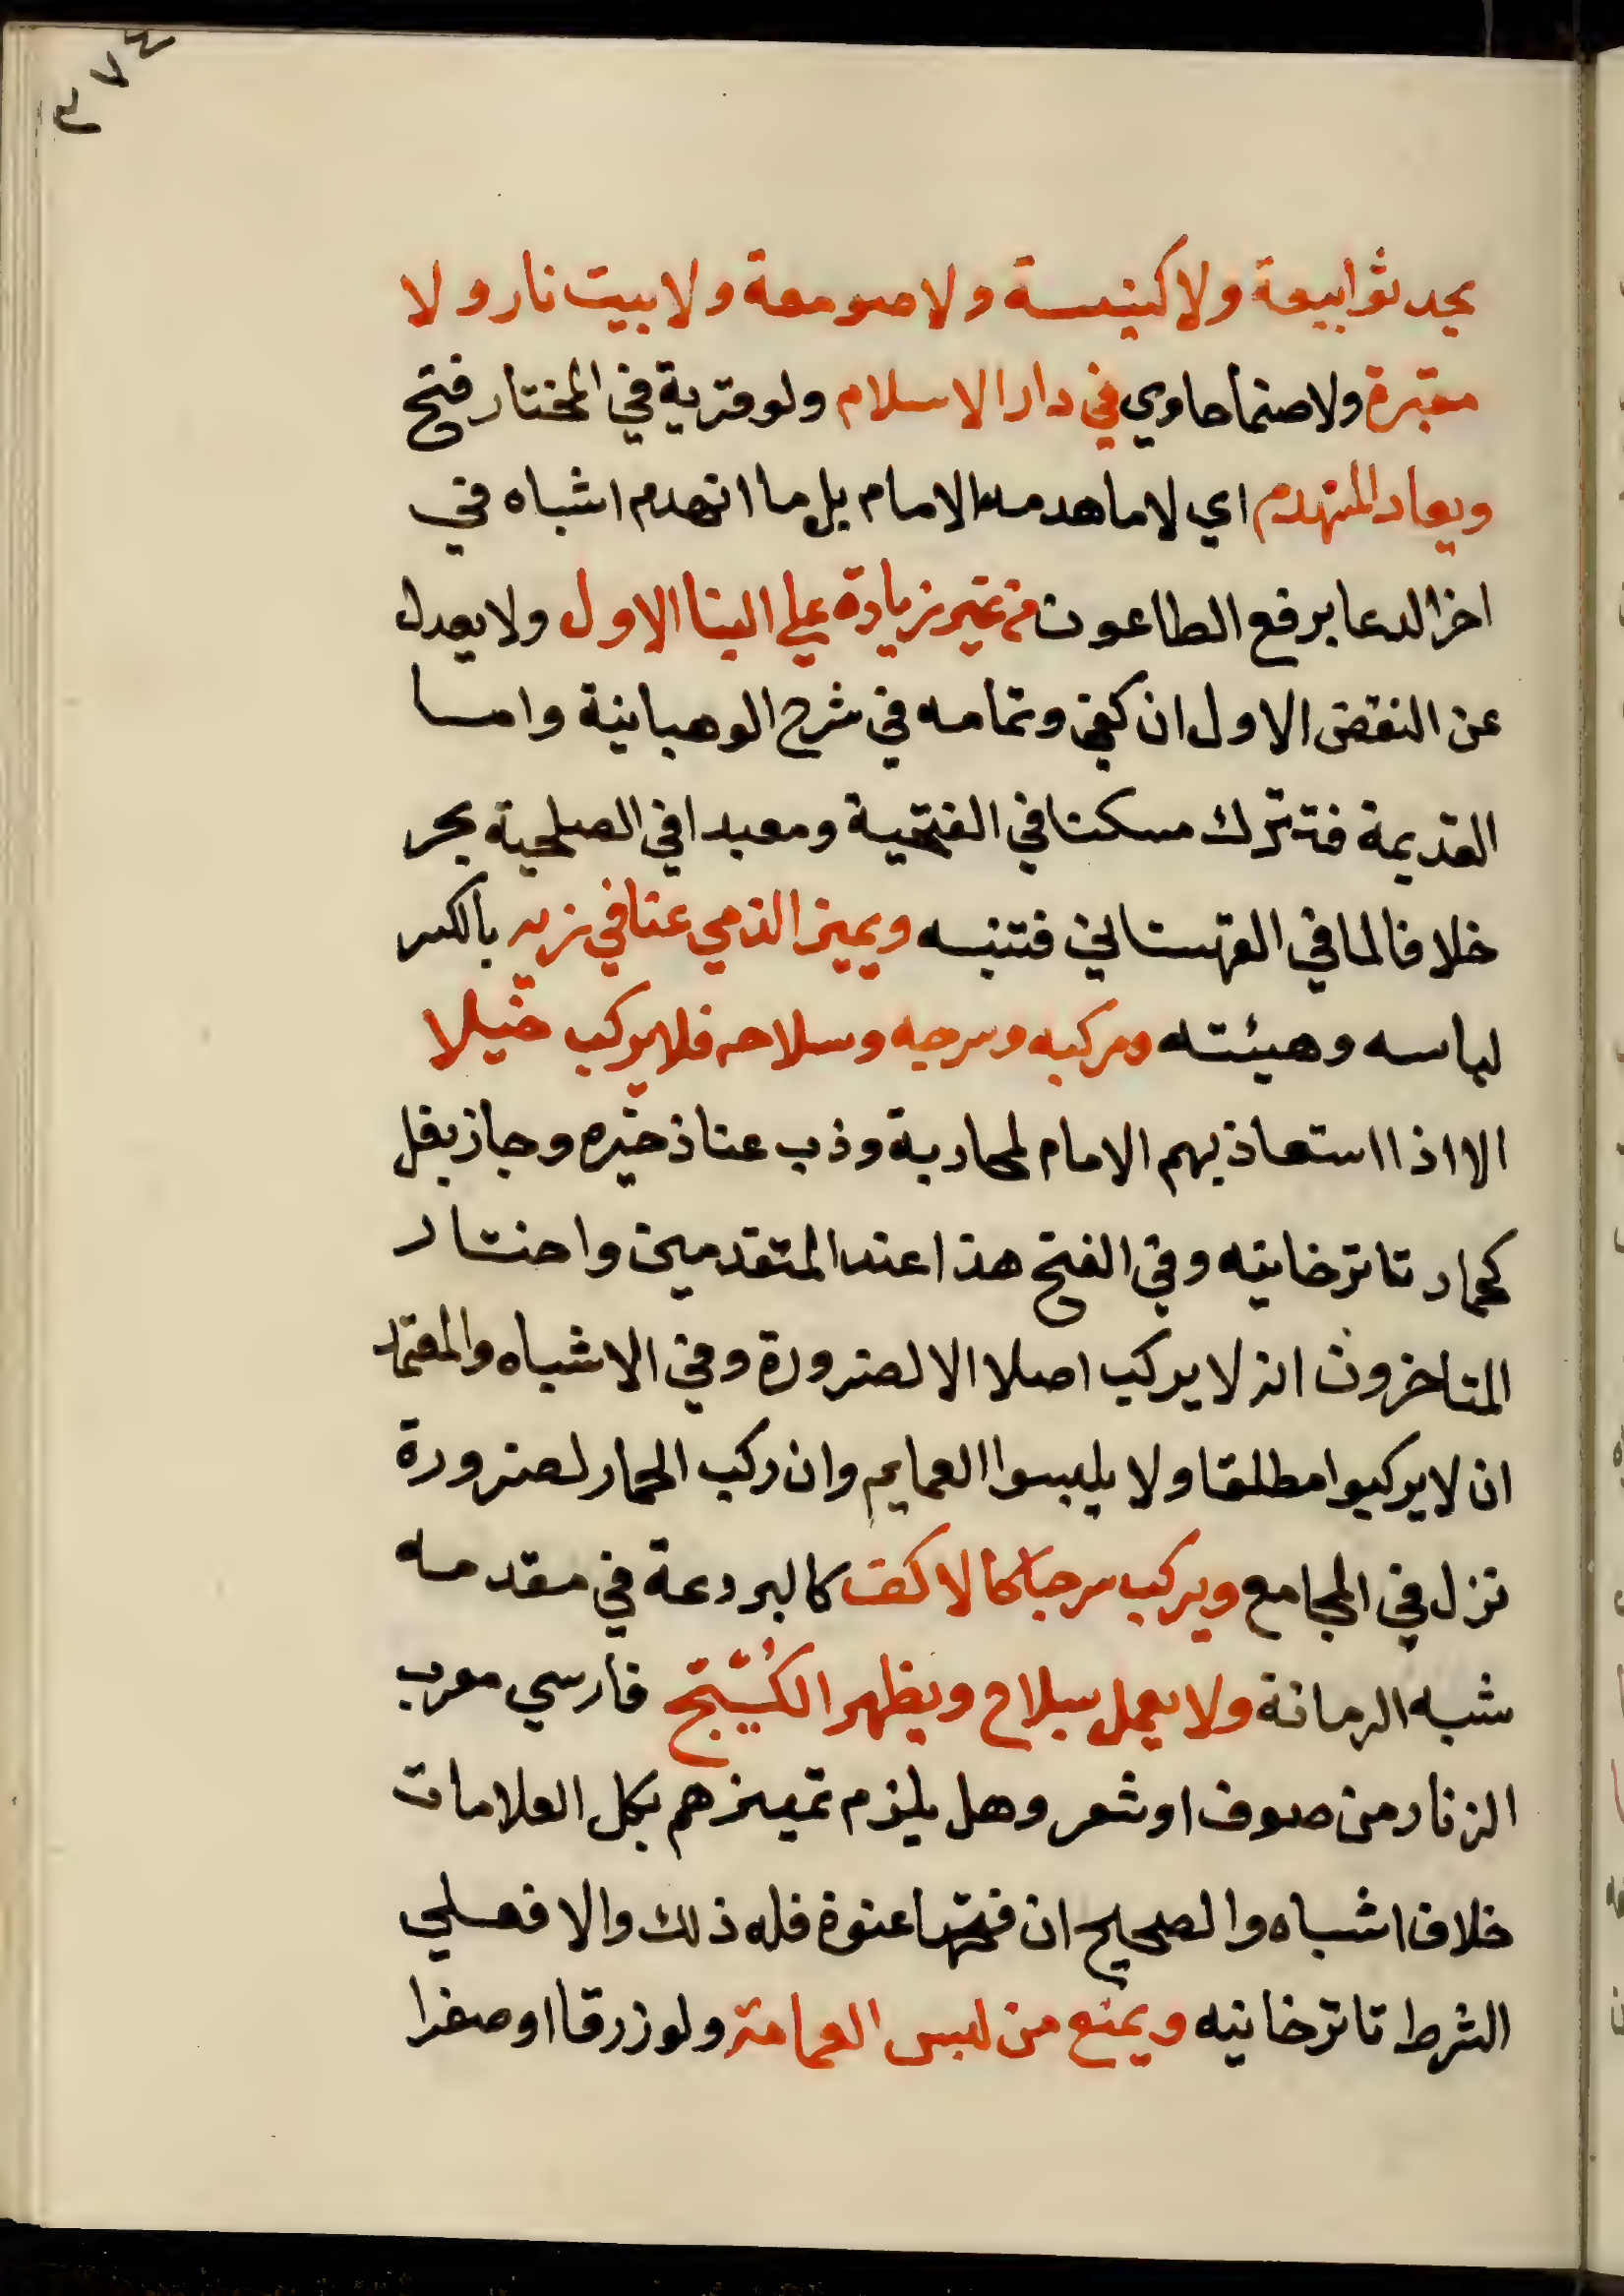 ٣٧٤
يحدثوا بيعة ولا كنيسة ولا صومعة ولا بيت نار ولا
مقبرة ولا صنما حاوي في دار الاسلام ولو قرية في المختار فتح
ويعاد المنهدم اي لا ما هدمه الامام بل ما انهدم اشباه في
اخر الدعا برفع الطاعون من غير زيادة علي البنا الاول ولا يعدل
عن النقض الاول ان كفي وتمامه في شرح الوهبانية واما
القديمة فتترك مسكنا في الفتحية ومعبدا في الصلحية بحر
خلافا لما في القهستاني فتنبه ويميز الذمي عنا في زيه بالكسر
لباسه وهيئته ومركبه وسرجه وسلاحه فلا يركب خيلا
الا اذا استعاذ بهم الامام لمحاربة وذب عنا ذخيره وجاز بغل
كحمار تاترخانيه وفي الفتح هذا عند المتقدمين واختار
المتاخرون انه لا يركب اصلا الا لضرورة وفي الاشباه والمعتمد
ان لا يركبوا مطلقا ولا يلبسوا العمايم وان ركب الحمار لضرورة
نزل في المجامع ويركب سرجا كالاكف كالبردعة في مقدمه
شبه الرمانة ولا يعمل بسلاح ويظهر الكُسْتيج فارسي معرب
الزنار من صوف او شعر وهل يلزم تمييزهم بكل العلامات
خلاف اشباه والصحيح ان فتحها عنوة فله ذلك والا فعلي
الشرط تاترخانيه ويمنع من لبس العمامة ولو زرقا او صفرا